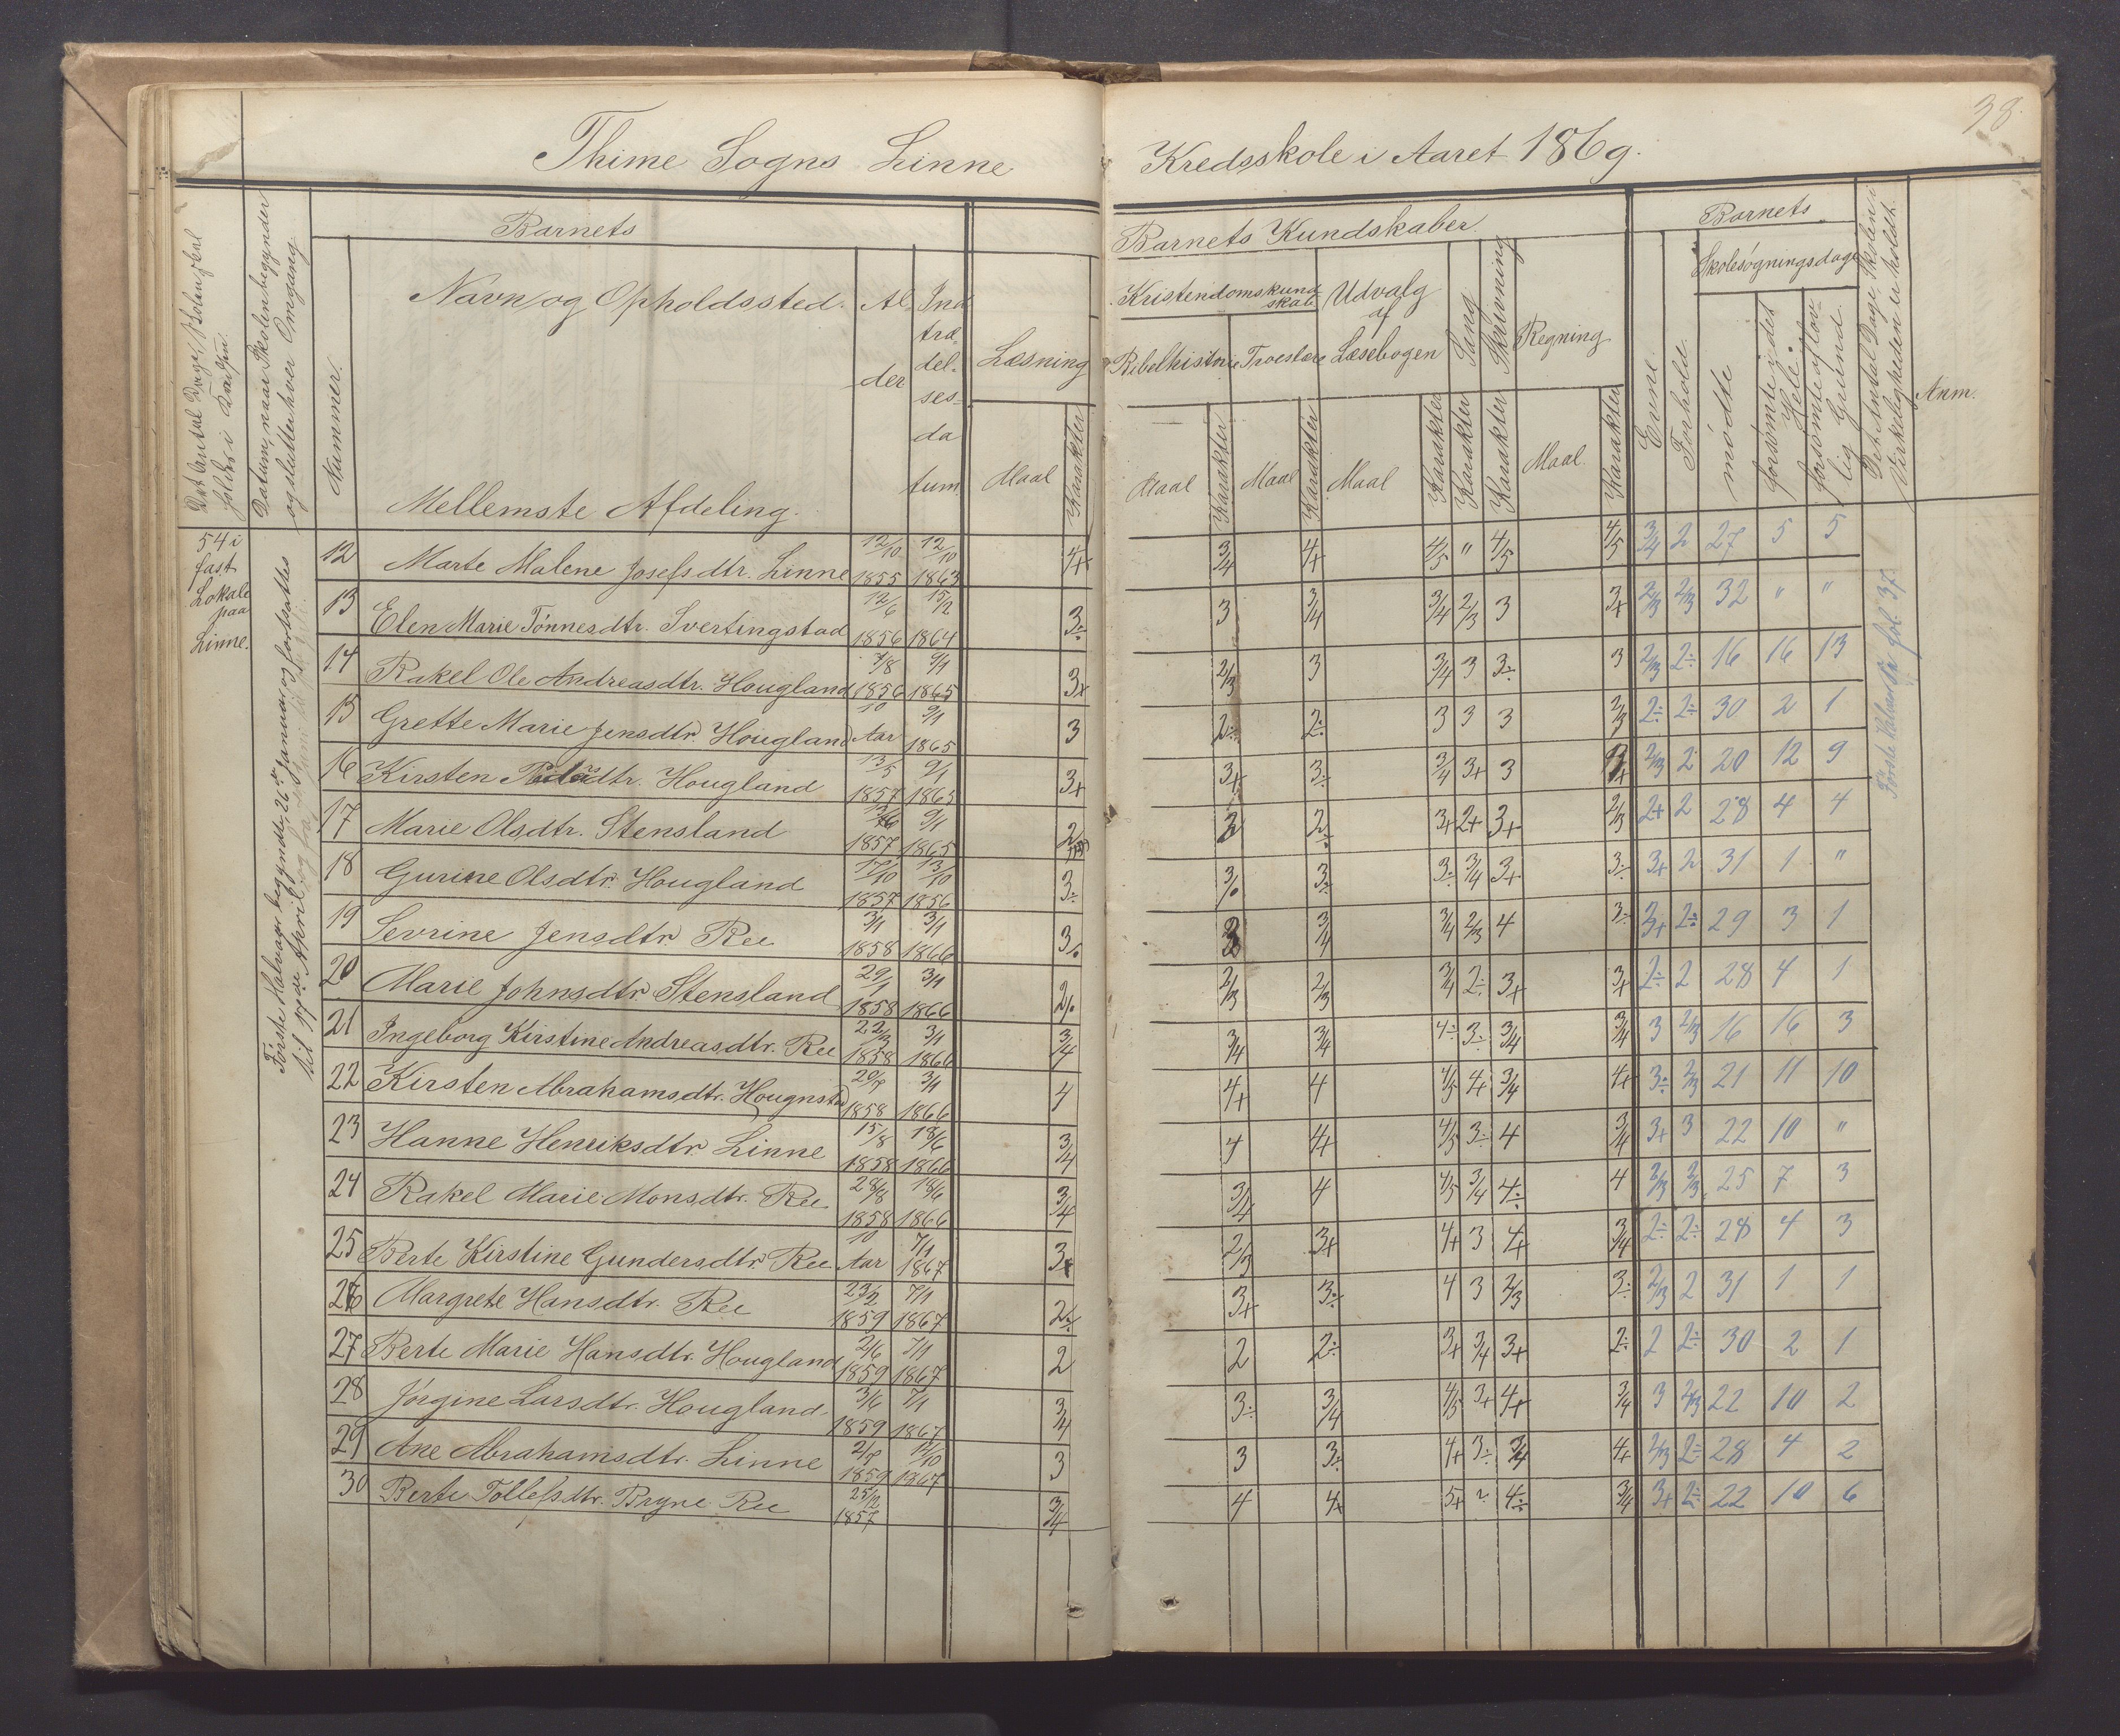 38.
Thime Sogns Linne Kredsskole i Aaret 1869.
Det Antal Dage, Skolen skal holdes i Kredsen.
Datum, naar Skolen begynder og slutter hver Omgang.
Nummer.
Barnets
Navn og Opholdssted.
Mellemste Afdeling.
Al-
der
Ind
træ-
del-
ses-
da
tum.
Læsning
Maal
Karakter
Barnets Kundskaber.
Kristendomskund-
skab
Bibelhistorie
Troeslære
Udvalg
af
Læsebogen
Sang
Skrivning
Regning
Maal Karakter Maal Karakter Maal Karakter Karakter Karakter Maal. Karakter
Barnets
Evne.
Forhold.
Skolesøgningsdage
mødte
forsømte i det Hele.
forsømte af lov-
lig Grund.
Det Antal Dage, Skolen i
Virkeligheden er holdt.
Anm.
54 i
fast
Lokale
paa
Linne.
Første Halvaar begyndte 26de Januar og fortsattes
til 17de April
Første Halvaar fol. 37.
12 Marte Malene Josefsdtr. Linne 12/10 1855 12/10 1863 4+ 3/4 4+ 4/5 " 4/5 4/5 3/4 2 27 5 5
13 Elen Marie Tönnesdtr. Svertingstad 12/6 1856 15/2 1864 3÷ 3 3/4 3/4 2/3 3 3+ 2/3 2/3 32 " "
14 Rakel Ole Andreasdtr. Hougland 7/8 1856 9/1 1865 3+ 2/3 3 3/4 3 3÷ 3 2/3 2÷ 16 16 13
15 Grette Marie Jensdtr. Hougland 10 Aar 9/1 1865 3 2÷ 2÷ 3 3 3 2/3 2÷ 2÷ 30 2 1
16 Kirsten Hougland 13/5 1857 9/1 1865 3+ 3+ 3÷ 3/4 3+ 3 2/3 2 20 12 9
17 Marie Olsdtr. Stensland 1857 9/1 1865 2 2÷ 3+ 2+ 3+ 2/3 2+ 2 28 4 4
18 Gurine Olsdtr. Hougland 17/10 1857 13/10 1856 3÷ 3÷ 3÷ 3÷ 3/4 3+ 3÷ 3+ 2 31 1 "
19 Sevrine Jensdtr. Ree 3/1 1858 3/1 1866 3÷ 3 3/4 3/4 2/3 4 3÷ 3+ 2÷ 29 3 1
20 Marie Johnsdtr. Stensland 29/1 1858 3/1 1866 2÷ 2/3 2/3 3/4 2÷ 3+ 3+ 2÷ 2 28 4 1
21 Ingeborg Kirstine Andreasdtr. Ree 22/3 1858 3/1 1866 3/4 3/4 3/4 4÷ 3÷ 3/4 3/4 3 2/3 16 16 3
22 Kirsten Abrahamsdtr. Hougnstad 20/7 1858 3/1 1866 4 4+ 4 4/5 4+ 3/4 4+ 3÷ 2/3 21 11 10
23 Hanne Henriksdtr. Linne 15/8 1858 18/6 1866 3/4 4 4+ 4/5 3÷ 4 3/4 3+ 3 22 10 "
24 Rakel Marie Monsdtr. Ree 28/8 1858 18/6 1866 3/4 3/4 4 4/5 3/4 4÷ 4 2/3 2/3 25 7 3
25 Berte Kirstine Gundersdtr. Ree 10 Aar 7/1 1867 3+ 2/3 3+ 4+ 3 4+ 3/4 2÷ 2÷ 28 4 3
26 Margrete Hansdtr. Ree 23/2 1859 7/1 1867 2÷ 3+ 3÷ 4 3 2/3 3÷ 2/3 2 31 1 1
27 Berte Marie Hansdtr. Hougland 2/6 1859 7/1 1867 2 2 2÷ 3+ 3/4 3+ 2÷ 2 2÷ 30 2 1
28 Jörgine Larsdtr. Hougland. 3/6 1859 7/1 1867 3/4 3÷ 3/4 4/5 3+ 4+ 3/4 3 2/3 22 10 2
29 Ane Abrahamsdtr. Linne 2/7 1859 14/10 1867 3 3 3÷ 4+ 3÷ 3/4 4+ 2/3 2÷ 28 4 2
30 Berte Tollefsdtr. Bryne Ree 25/12 1857 3/4 4 4+ 5+ 4÷ 3/4 3+ 2÷ 22 10 6